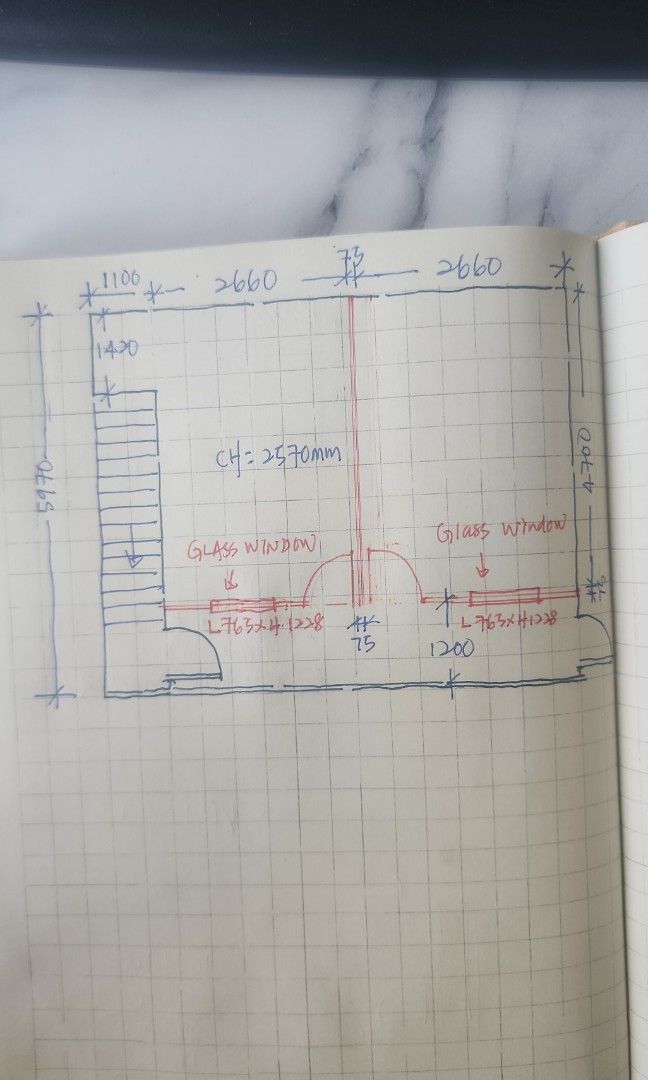 75
1100
2660
2660
1420
5970
CH = 2570mm
4700
GLASS WINDOW
Glass Window
75
L765XH1228
L765XH1228
75
1200